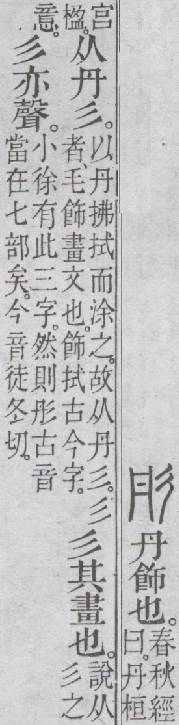 彤丹飾也。春秋經
曰。丹桓
宮
楹。从丹彡。以丹拂拭而涂之。故从丹彡。彡
者毛飾畫文也。飾拭古今字。彡其畫也。說从
彡之
意。彡亦聲。小徐有此三字。然則彤古音
當在七部矣。今音徒冬切。